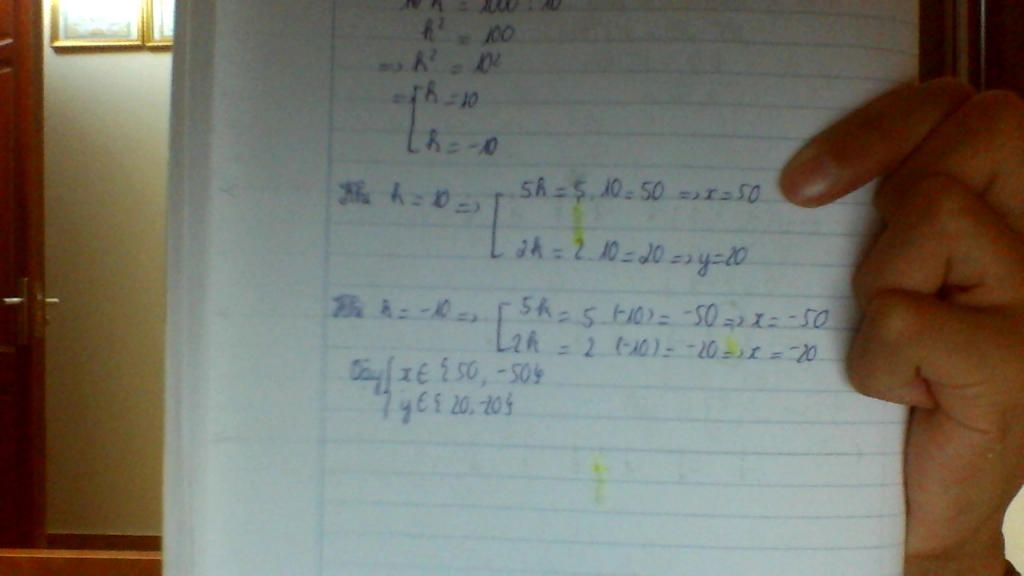 10 k² = 1000 : 10
k² = 100
=> k² = 10²
=> [ k = 10
k = -10
Khi k = 10 => [ 5k = 5 . 10 = 50 => x = 50
2k = 2 . 10 = 20 => y = 20
Khi k = -10 => [ 5k = 5 (-10) = -50 => x = -50
2k = 2 (-10) = -20 => x = -20
Vậy { x ∈ { 50, -50 }
y ∈ { 20, -20 }